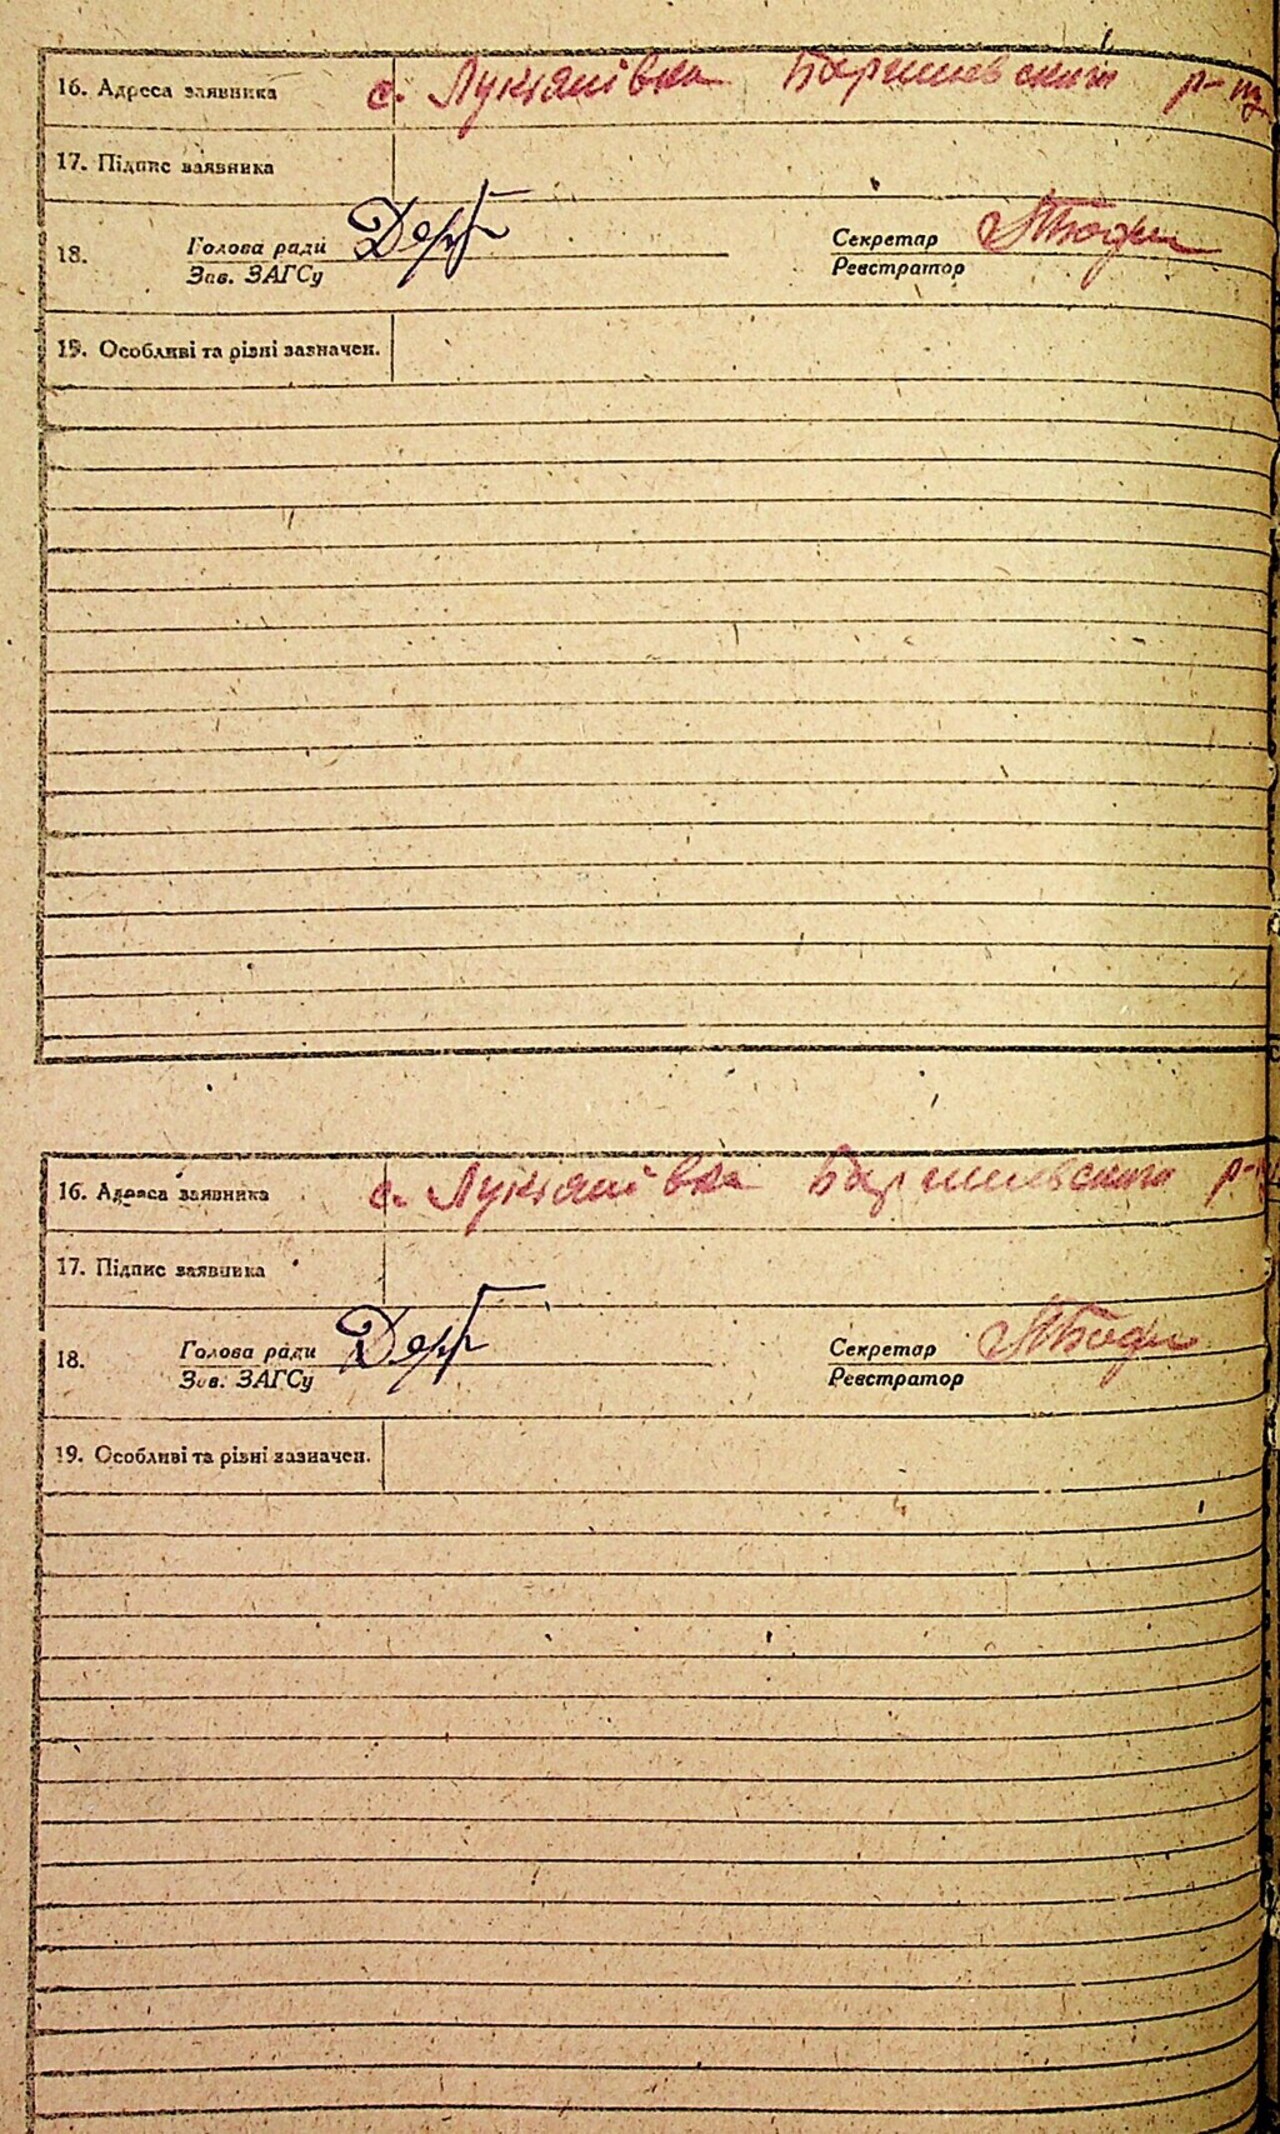 16. Адреса заявника с. Лукіянівка Баришевского р-ну
17. Підпис заявника
18. Голова ради Секретар
Зав. ЗАГСу Реєстратор
19. Особливі та різні зазначен.
16. Адреса заявника с. Лукіянівка Баришевского р-ну
17. Підпис заявника
18. Голова ради Секретар
Зав. ЗАГСу Реєстратор
19. Особливі та різні зазначен.